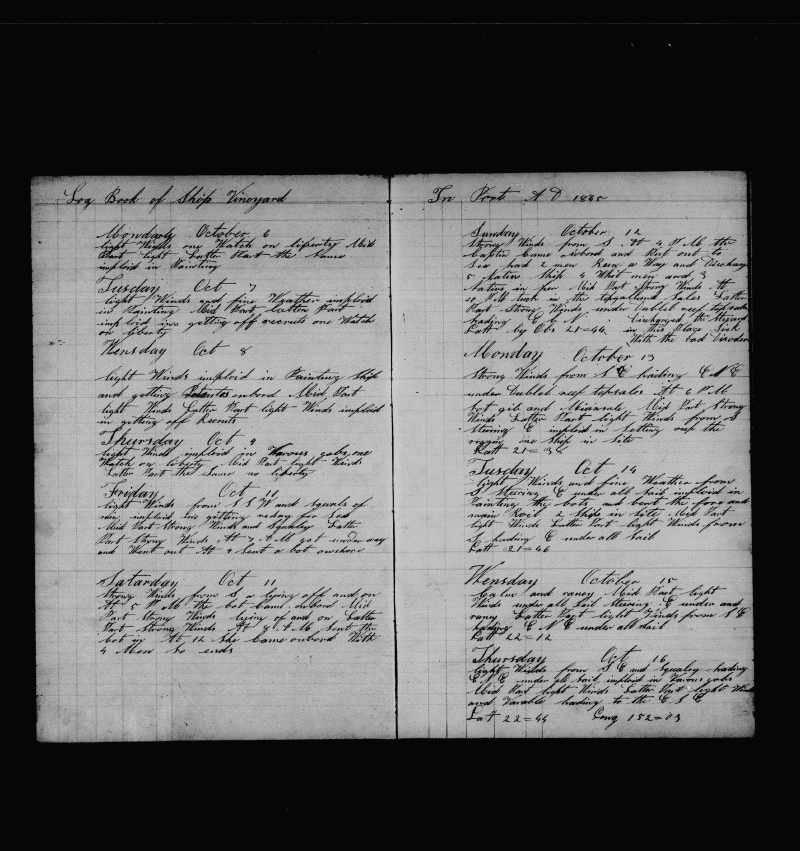 Log Book of Ship Vineyard
Monday October 6
light Winds one Watch on liperty Mid
Part light Latter Part the Same
imploid in Painting
Tusday Oct 7
light Winds and fine Weather imploid
in Painting Mid Part Latter Part
imploid in getting off recruits one Watch
on liberty
Wensday Oct 8
light Winds imploid in Painting Ship
and getting onbord Mid Part
light Winds Latter Part light Winds imploid
in getting off Recruits
Thursday Oct 9
light Winds imploid in Varous gobs one
Watch on liberty Mid Part light Winds
Latter Part the Same no liberty
Friday Oct 11
light Winds from S S W and Squals of
rain imploid in gitting reday for Sea
Mid Part Strong Winds and Squaley Latter
Part Strong Winds At 7 A M got underway
and Went out At 9 Sent a bot onshore
Satarday Oct 11
Strong Winds from S a lying off and on
At 5 P M the bot Came onbord Mid
Part Strong Winds lying of and on Latter
Part Strong Winds At 8 A M Sent the
bot in At 12 She Came onbord With
4 Men So ends
In Port A D 1845
Sunday October 12
Strong Winds from S At 4 P M the
Captin Came onbord and Put out to
Sea had 2 men Run a Way and Discharge
5 Natives Ship 4 Whit men and 3
natives in Mid Part Strong Winds At
10 P M tuck in the Sales Latter
Part Strong Winds under Dublel reef topsales
heading E by N the Steward
Latt by Obs 21=44 in this Place Sick
With the bad Disorder
Monday October 13
Strong Winds from S E hading E N E
under Dublel reef topsales At 6 P M
Set gib and Mid Part Strong
Winds Latter Part light Winds from S
Stering E imploid in Setting up the
riggin one Ship in Site
Latt 21=34
Tusday Oct 14
light Winds and fine Weather from
S Stering E under all Sail imploid in
Painting the bots and bent the fore and
main Roil 2 Ships in Site Mid Part
light Winds Latter Part light Winds from
S hading E under all Sail
Latt 21=46
Wensday October 15
Calm and raney Mid Part light
Winds under all Sail Stering E under and
raney Latter Part light Winds from S E
hading E N E under all Sail
Latt 22=12
Thursday Oct 16
light Winds from S E and Squaley hading
E N E under all Sail imploid in Varous gobs
Mid Part light Winds Latter Part light Winds
and Variable hading to the E S E
Latt 22=44 Long 152=03